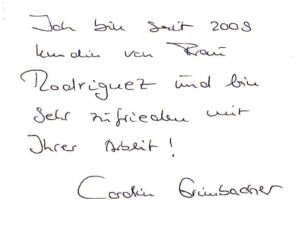 Ich bin seit 2009
Kundin von Frau
Rodriguez und bin
sehr zufrieden mit
Ihrer Arbeit!